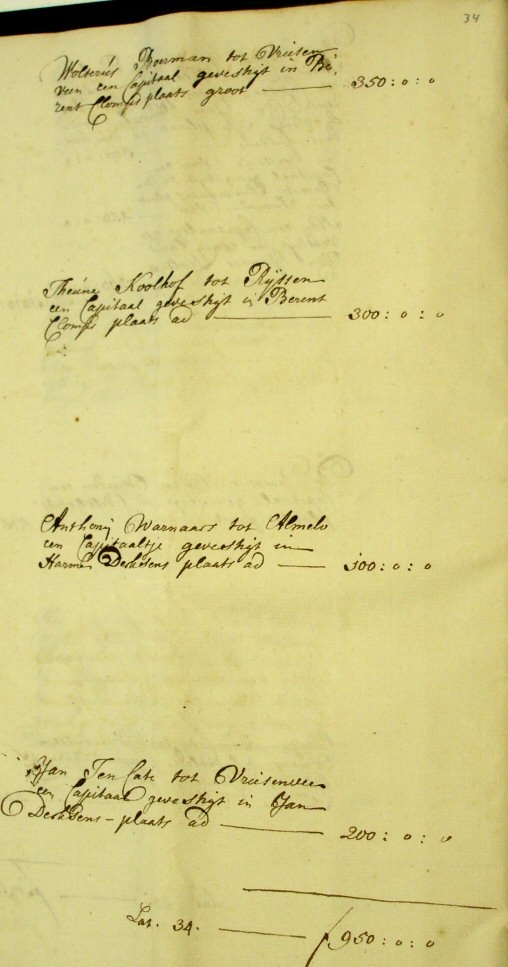 34
Wolterus Bourman tot Vriesen
veen een Capitaal gevestigt in Be,
rent Clomps plaats groot — 350 : 0 : 0
Theunes Koolhof tot Rijssen
een Capitaal gevestigt in Berent
Clomps plaats ad — 300 : 0 : 0
Anthonij Warnaars tot Almelo
een Capitaaltje gevestigt in
Harmen Derksens plaats ad — 100 : 0 : 0
Jan Ten Cate tot Vriesenveen
een Capitaal gevestigt in Jan
Derksens - plaats ad — 200 : 0 : 0
Lat. 34. — ƒ 950 : 0 : 0